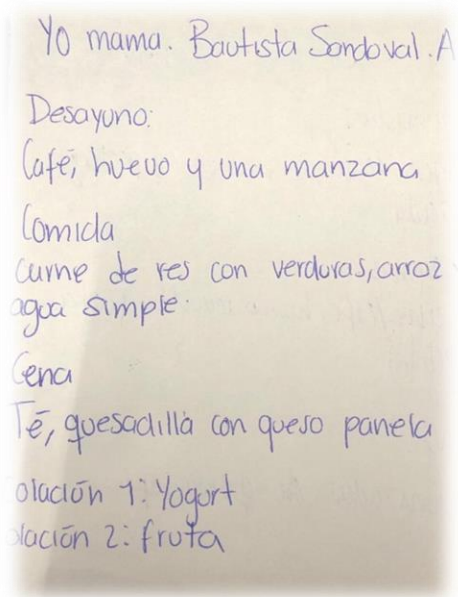 Yo mama. Bautista Sandoval. A
Desayuno:
Café, huevo y una manzana
Comida
carne de res con verduras, arroz
agua simple.
Cena
Té, quesadilla con queso panela
olación 1: Yogurt
olación 2: fruta